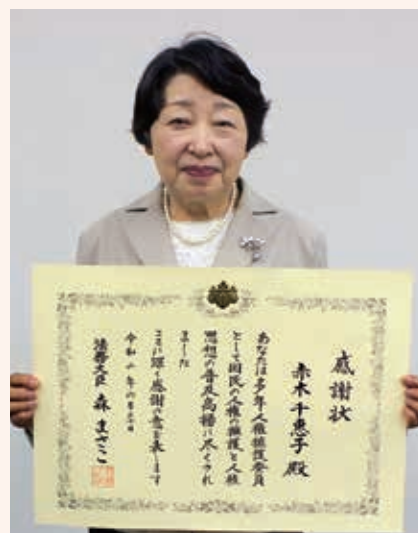 感謝状
赤木千恵子 殿
あなたは多年人権擁護委員
として国民の人権の擁護と人権
思想の普及高揚に尽くされ
ました
ここに深く感謝の意を表します
令和二年六月
法務大臣 森まさこ